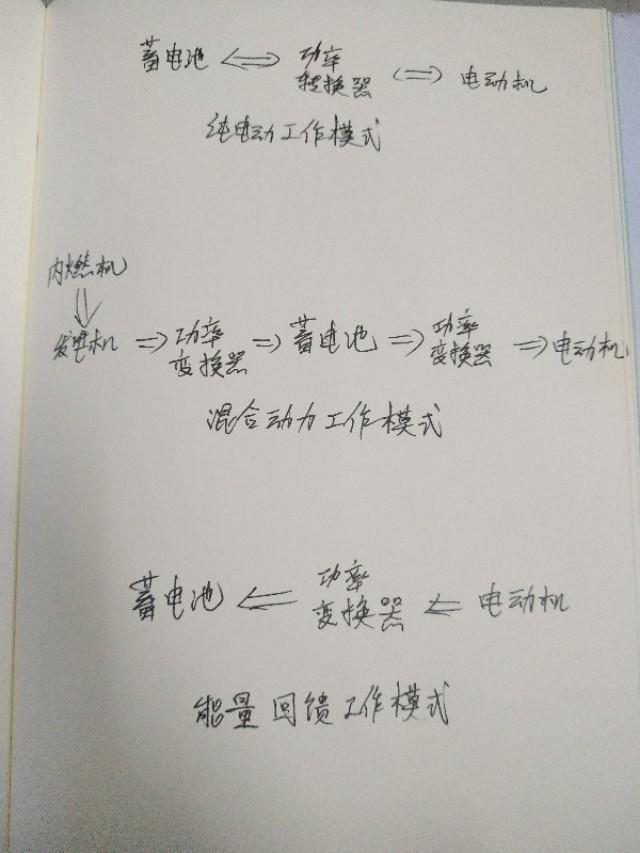 蓄电池 ⇔ 功率转换器 ⇔ 电动机
纯电动工作模式
内燃机
⇓
发电机 ⇒ 功率变换器 ⇒ 蓄电池 ⇒ 功率变换器 ⇒ 电动机
混合动力工作模式
蓄电池 ⇐ 功率变换器 ⇐ 电动机
能量回馈工作模式